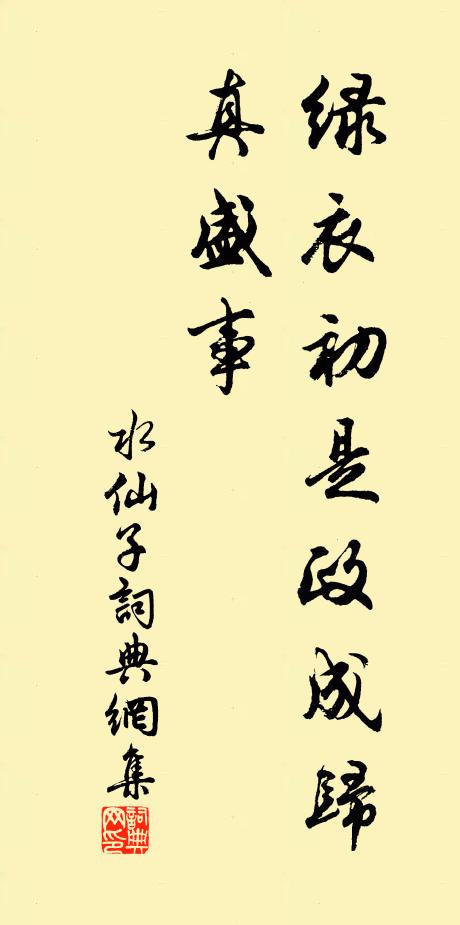 綠衣初是政成歸
真盛事
水仙子詞典網集
詞典網印